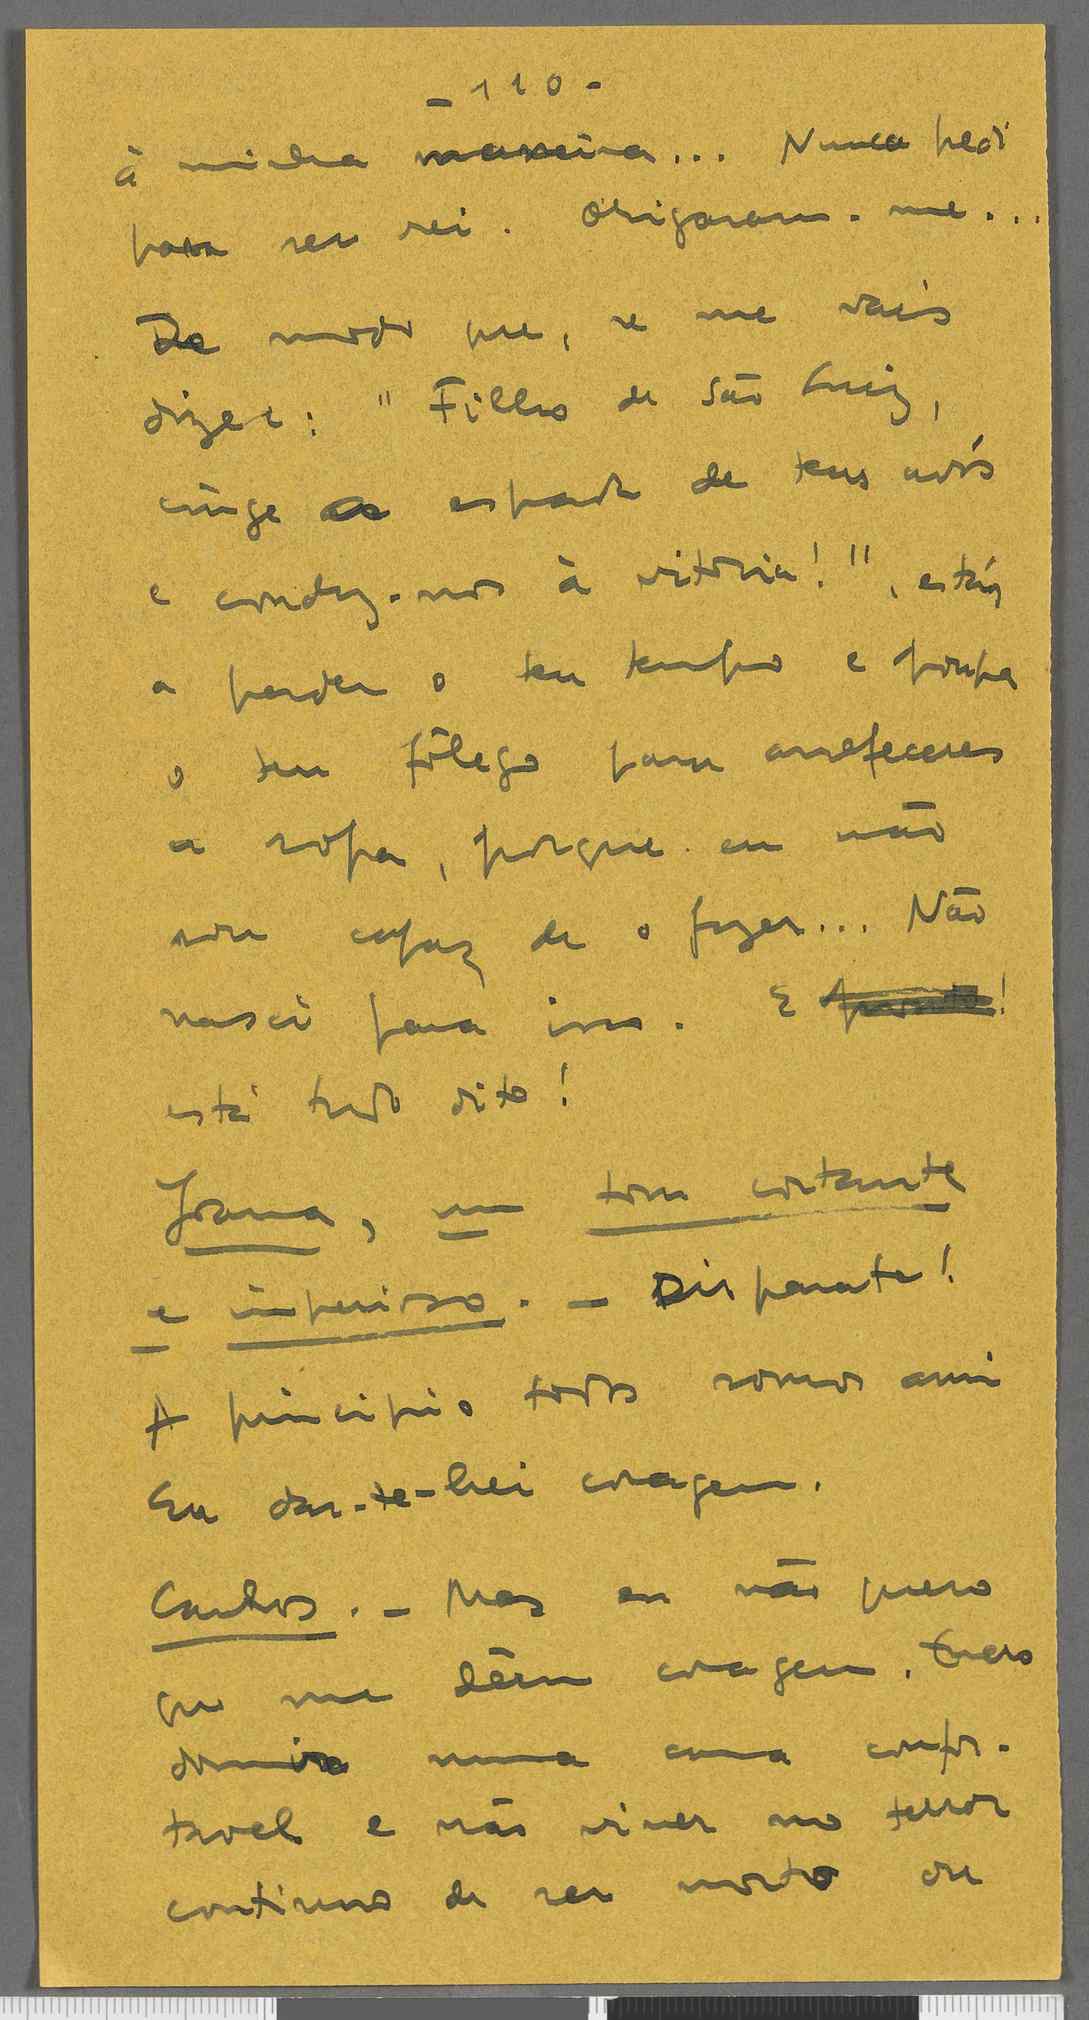 - 110 -
à minha maneira... Nunca pedi
para ser rei. Obrigaram-me...
De modo que, se me vais
dizer: "Filho de São Luiz,
cinge a espada de teus avós
e conduz-nos à vitória!", estás
a perder o teu tempo e poupa
o teu fôlego para arrefeceres
a sopa, porque eu não
sou capaz de o fazer... Não
nasci para isso. E pronto!
está tudo dito!
Joana, num tom cortante
e imperioso. - Disparate!
A princípio todos somos assim
Eu dar-te-hei coragem.
Carlos. - Mas eu não quero
que me dêem coragem. Quero
dormir numa cama confor-
tavel e não viver no terror
continuo de ser morto ou